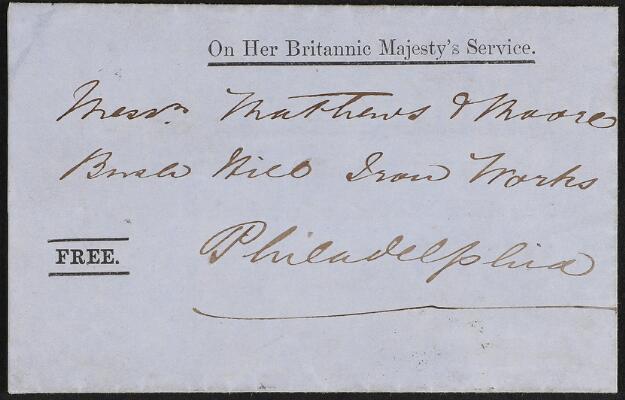 On Her Britannic Majesty's Service.
Messrs Matthews & Moore
Bush Hill Iron Works
FREE.
Philadelphia